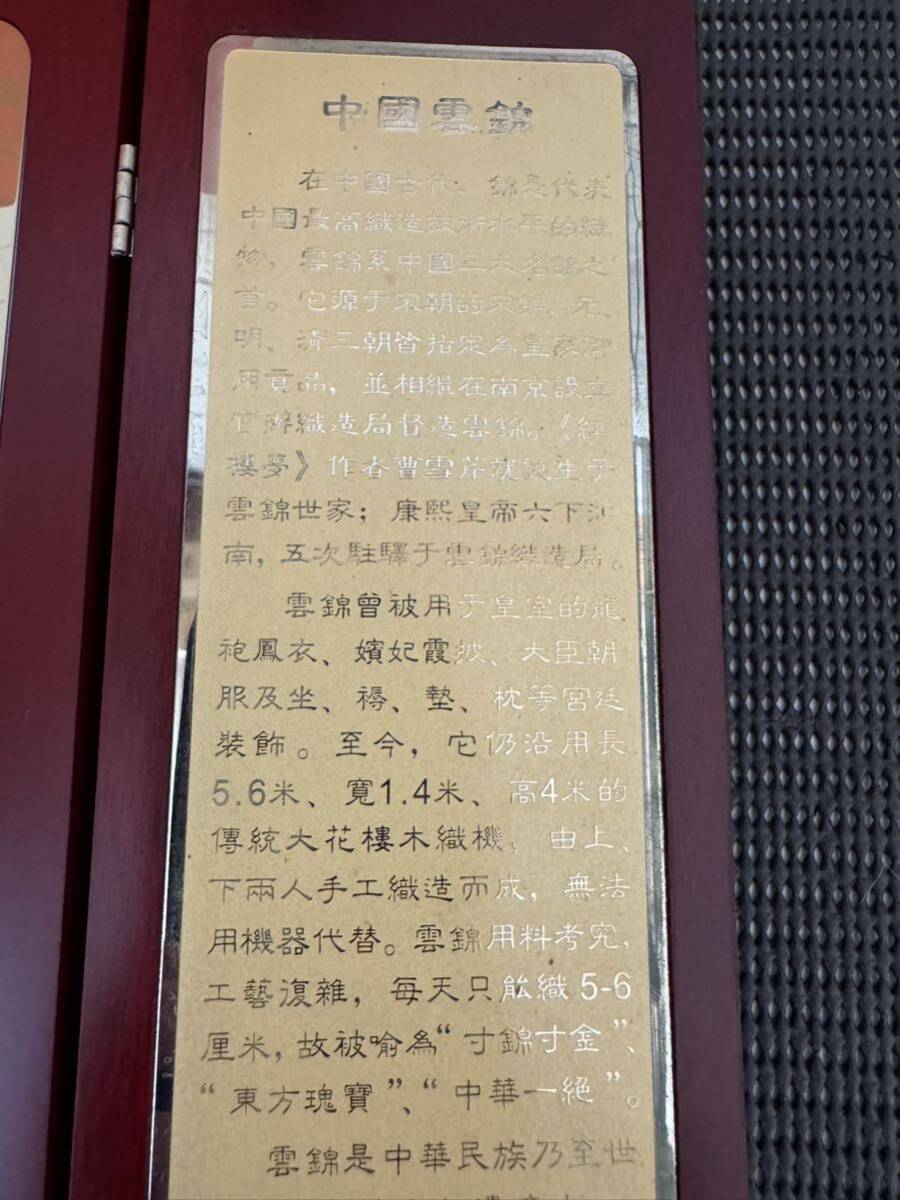 中國雲錦
在中國古代，錦是代表
中國最高織造技術水平的織
物，雲錦系中國三大名錦之
首。它源于宋朝的宋錦，元、
明、清三朝皆指定為皇家御
用貢品，並相繼在南京設立
官辦織造局督造雲錦。《紅
樓夢》作者曹雪芹就誕生于
雲錦世家；康熙皇帝六下江
南，五次駐驛于雲錦織造局。
雲錦曾被用于皇室的龍
袍鳳衣、嬪妃霞披、大臣朝
服及坐、褥、墊、枕等宮廷
裝飾。至今，它仍沿用長
5.6米、寬1.4米、高4米的
傳統大花樓木織機，由上、
下兩人手工織造而成，無法
用機器代替。雲錦用料考究，
工藝復雜，每天只能織5-6
厘米，故被喻為“寸錦寸金”、
“東方瑰寶”、“中華一絕”。
雲錦是中華民族乃至世